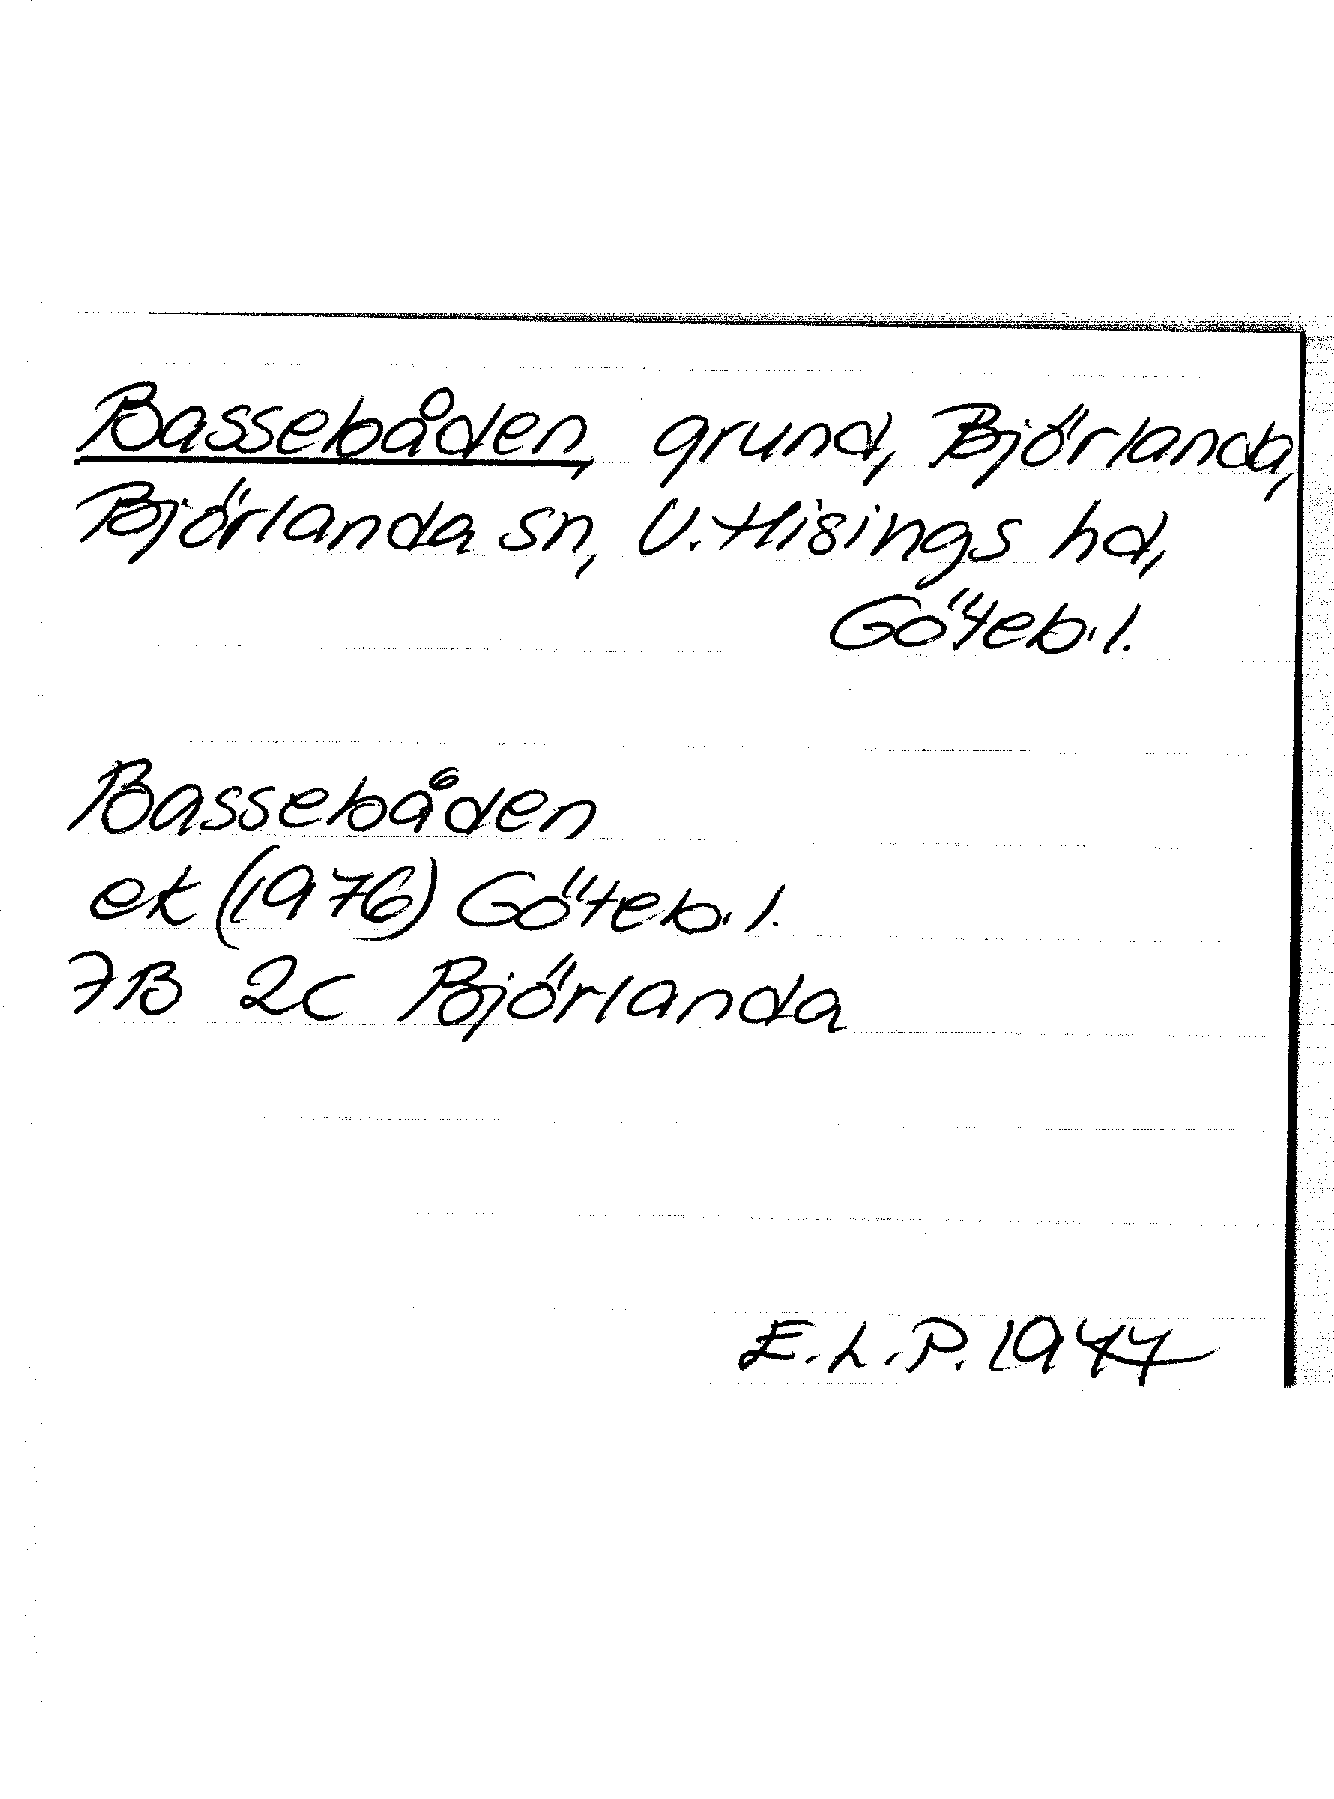 Bassebåden, grund, Björlanda,
Björlanda sn, V. Hisings hd,
Göteb. l.
Bassebåden
ek (1976) Göteb. l.
7B 2c Björlanda
E. L. P. 1977